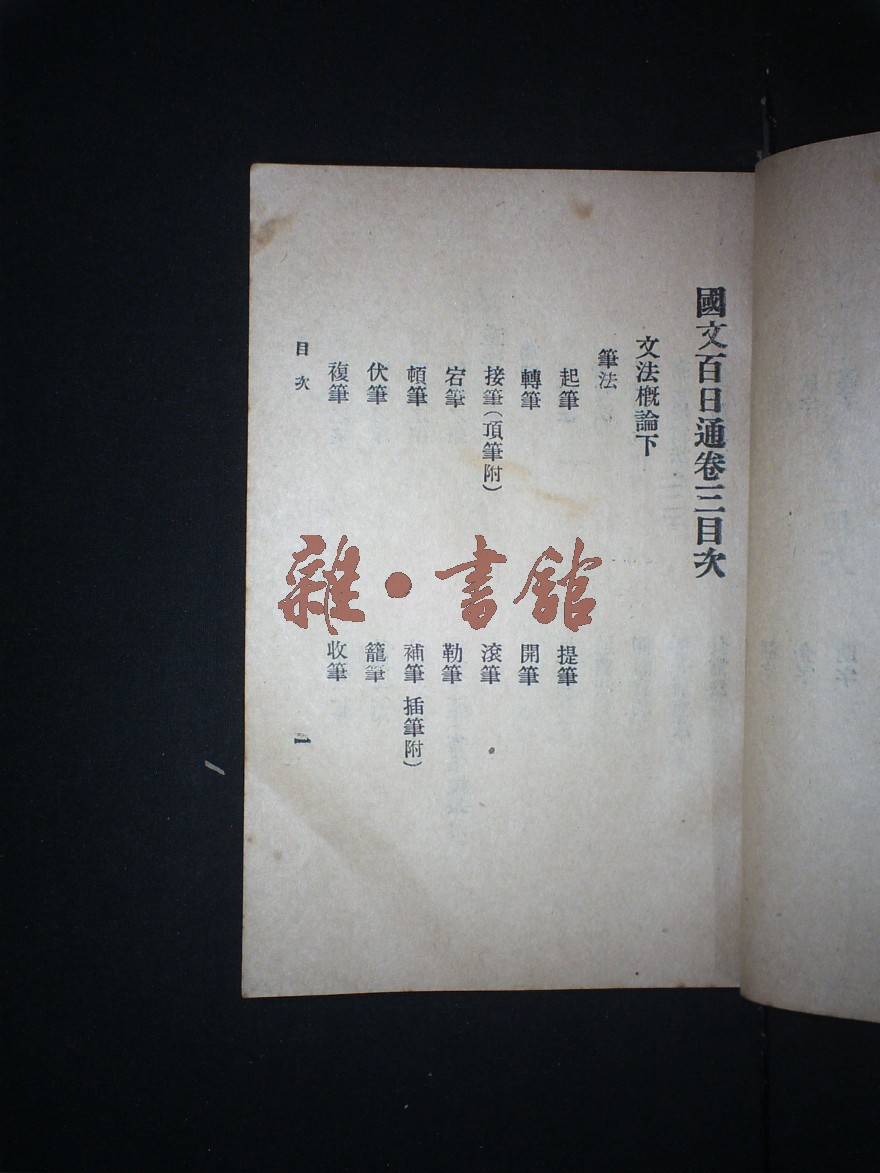 國文百日通卷三目次
文法概論下
筆法
起筆 提筆
轉筆 開筆
接筆(頂筆附) 滾筆
宕筆 勒筆
頓筆 補筆 插筆附)
伏筆 籠筆
複筆 收筆
目次 一
雜·書館